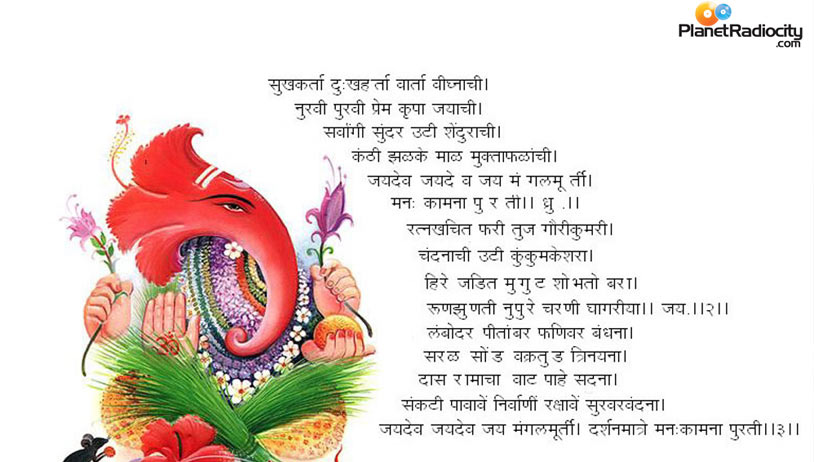 PlanetRadiocity
.com
सुखकर्ता दुःखहर्ता वार्ता वीघ्नाची।
नुरवी पुरवी प्रेम कृपा जयाची।
सर्वांगी सुंदर उटी शेंदुराची।
कंठी झळके माळ मुक्ताफळांची।
जयदेव जयदे व जय मं गलमू र्ती।
मनः कामना पु र ती।। ध्रु .।।
रत्नखचित फरी तुज गौरीकुमरी।
चंदनाची उटी कुंकुमकेशरा।
हिरे जडित मु गु ट शो भतो बरा।
रूणझुणती नुपुरे चरणी घागरीया।। जय.।।२।।
लंबोदर पीतांबर फणिवर बंधना।
सरळ सोंड वक्रतुड त्रिनयना।
दास रामाचा वाट पाहे सदना।
संकटी पावावें निर्वाणीं रक्षावें सुरवरवंदना।
जयदेव जयदेव जय मंगलमूर्ती। दर्शनमात्रे मनःकामना पुरती।।३।।